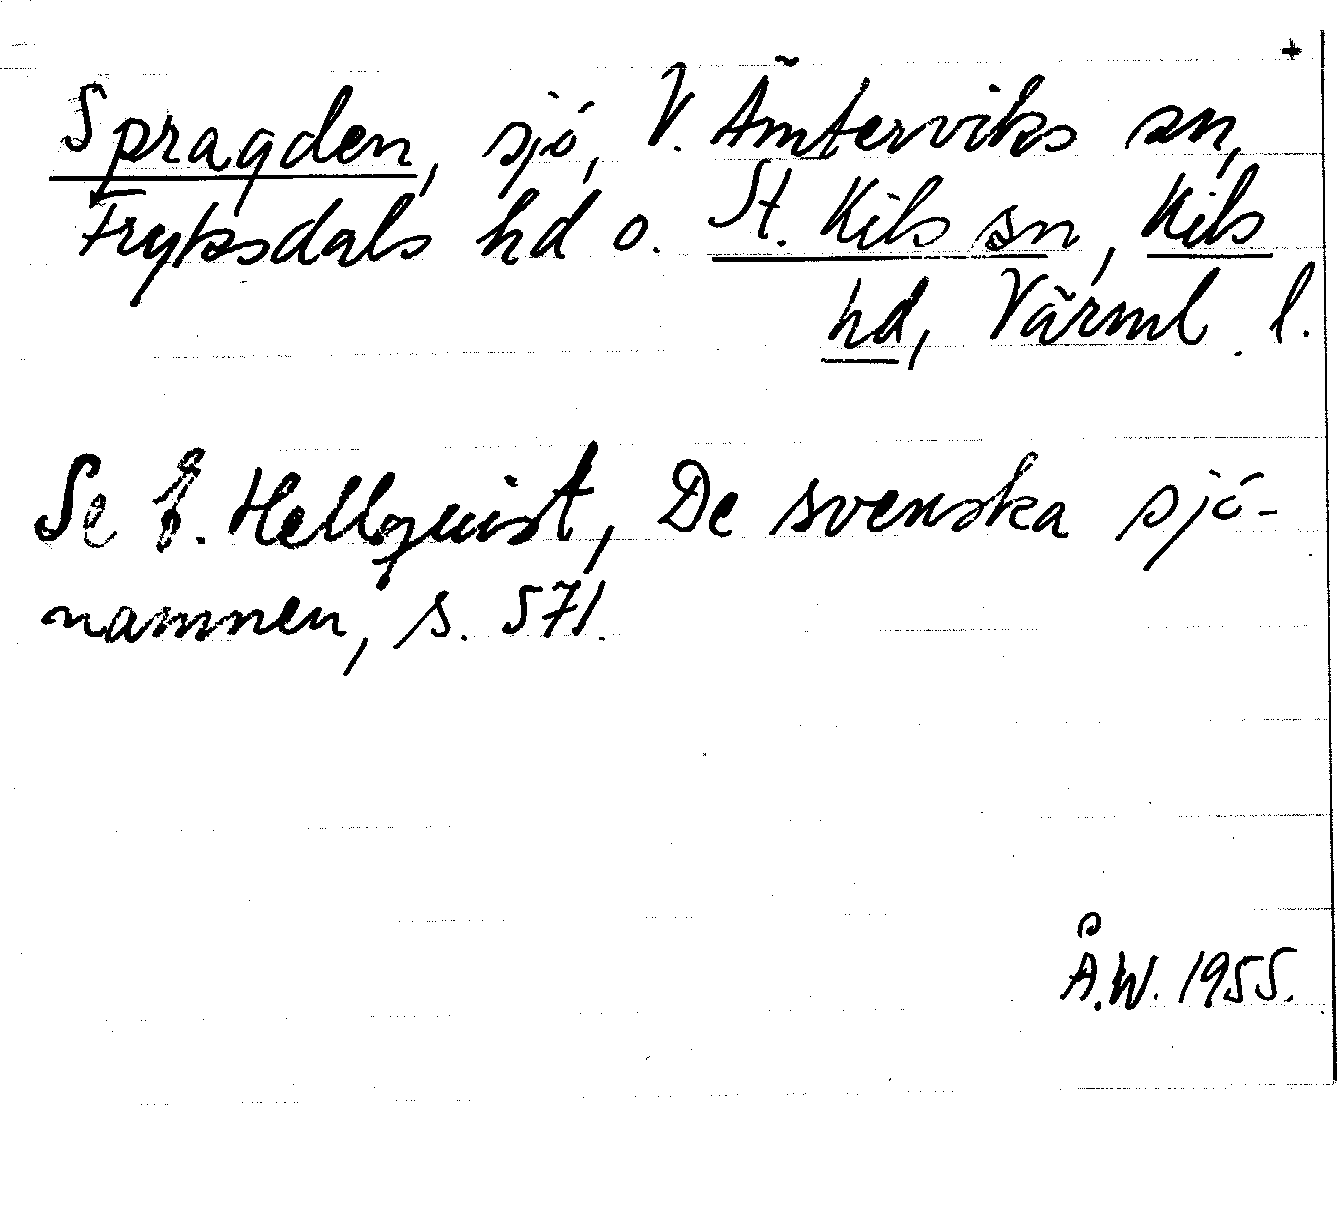 +
Spragden, sjö, V. Ämterviks sn,
Fryksdals hd o. St. Kils sn, Kils
hd, Värml. l.
Se E. Hellquist, De svenska sjö-
namnen, s. 571.
Å.W. 1955.